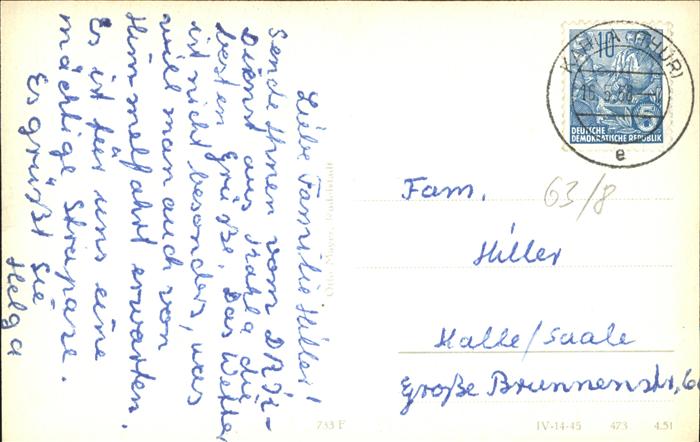 Liebe Familie Hiller!
Sende Ihnen vom DRK-
Dienst aus Kahla die
besten Grüße. Das Wetter
ist nicht besonders, was
will man auch von
Himmelfahrt erwarten.
Es ist für uns eine
mächtige Strapaze.
Es grüßt Sie
Helga
Otto Mayer, Rudolstadt
10
KAHLA (THÜR)
16.5.
e
DEUTSCHE
DEMOKRATISCHE REPUBLIK
63/8
Fam.
Hiller
Halle/Saale
Große Brunnenstr. 6
733 F
IV-14-45 473 4.51